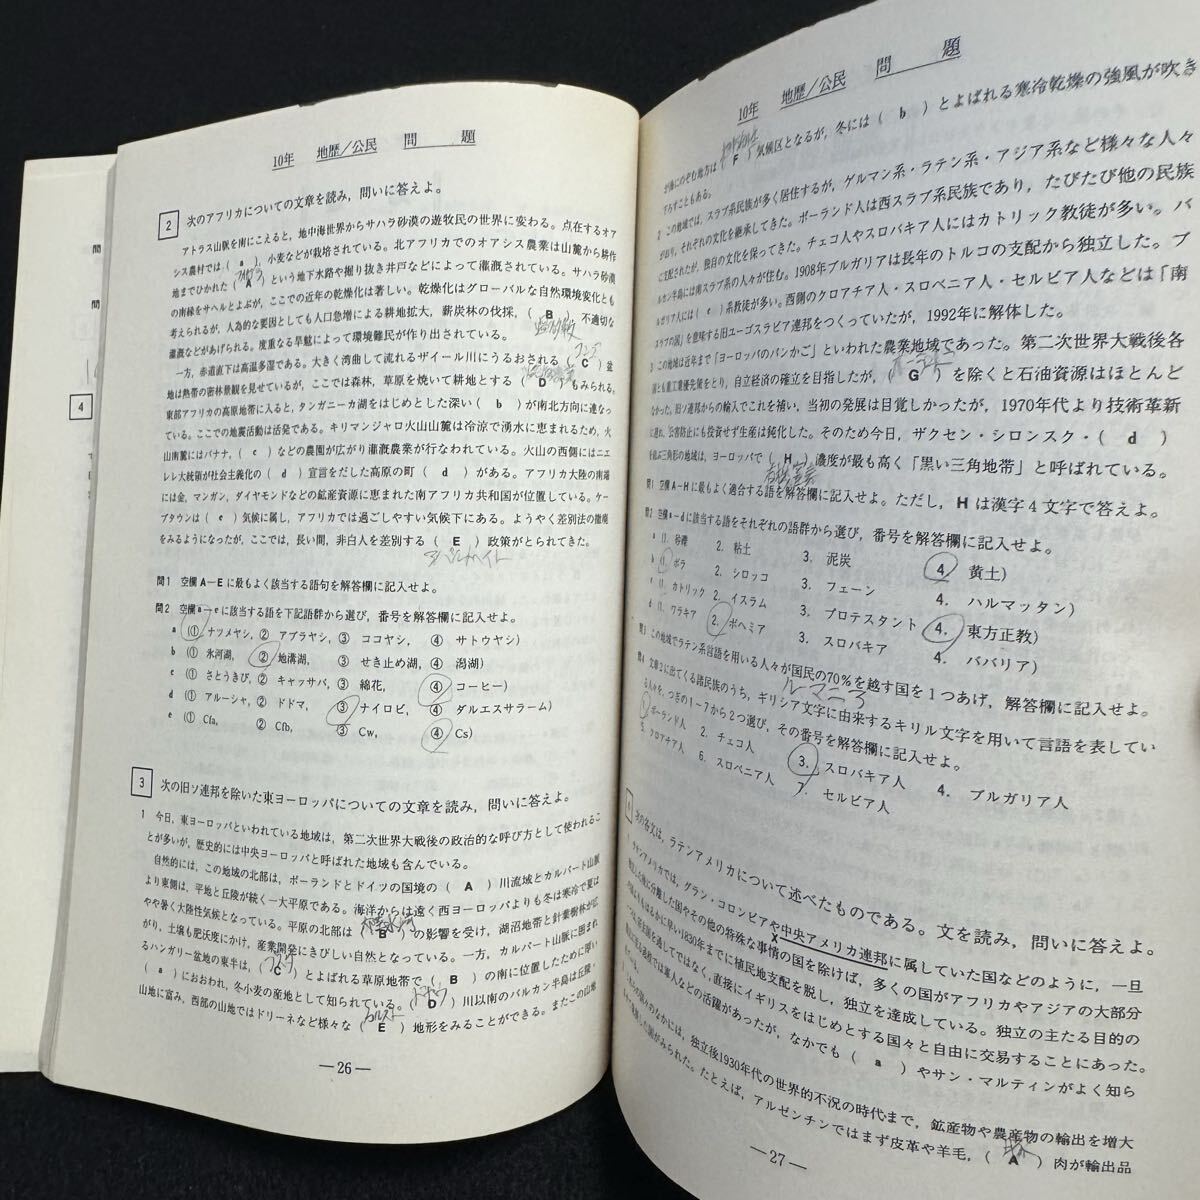 10年 地歴/公民 問 題
2 次のアフリカについての文章を読み，問いに答えよ。
アトラス山脈を南にこえると，地中海世界からサハラ砂漠の遊牧民の世界に変わる。点在するオア
シス農村では（ a ），小麦などが栽培されている。北アフリカでのオアシス農業は山麓から耕作
地までひかれた（ A ）という地下水路や掘り抜き井戸などによって灌漑されている。サハラ砂漠
の南縁をサヘルとよぶが，ここでの近年の乾燥化は著しい。乾燥化はグローバルな自然環境変化とも
考えられるが，人為的な要因としても人口急増による耕地拡大，薪炭林の伐採，（ B ），不適切な
灌漑などがあげられる。度重なる旱魃によって環境難民が作り出されている。
一方，赤道直下は高温多湿である。大きく湾曲して流れるザイール川にうるおされる（ C ）盆
地は熱帯の密林景観を見せているが，ここでは森林，草原を焼いて耕地とする（ D ）もみられる。
東部アフリカの高原地帯に入ると，タンガニーカ湖をはじめとした深い（ b ）が南北方向に連なっ
ている。ここでの地震活動は活発である。キリマンジャロ火山山麓は冷涼で湧水に恵まれるため，火
山南麓にはバナナ，（ c ）などの農園が広がり灌漑農業が行なわれている。火山の西側にはニエ
レレ大統領が社会主義化の（ d ）宣言をだした高原の町（ d ）がある。アフリカ大陸の南端
には金，マンガン，ダイヤモンドなどの鉱産資源に恵まれた南アフリカ共和国が位置している。ケー
プタウンは（ e ）気候に属し，アフリカでは過ごしやすい気候下にある。ようやく差別法の撤廃
をみるようになったが，ここでは，長い間，非白人を差別する（ E ）政策がとられてきた。
アパルトヘイト
問1 空欄A－Eに最もよく該当する語句を解答欄に記入せよ。
問2 空欄a－eに該当する語を下記語群から選び，番号を解答欄に記入せよ。
a （① ナツメヤシ，② アブラヤシ，③ ココヤシ，④ サトウヤシ）
b （① 氷河湖，② 地溝湖，③ せき止め湖，④ 潟湖）
c （① さとうきび，② キャッサバ，③ 綿花，④ コーヒー）
d （① アルーシャ，② ドドマ，③ ナイロビ，④ ダルエスサラーム）
e （① Cfa，② Cfb，③ Cw，④ Cs）
3 次の旧ソ連邦を除いた東ヨーロッパについての文章を読み，問いに答えよ。
1 今日，東ヨーロッパといわれている地域は，第二次世界大戦後の政治的な呼び方として使われるこ
とが多いが，歴史的には中央ヨーロッパと呼ばれた地域も含んでいる。
自然的には，この地域の北部は，ポーランドとドイツの国境の（ A ）川流域とカルパート山脈
より東側は，平地と丘陵が続く一大平原である。海洋からは遠く西ヨーロッパよりも冬は寒冷で夏は
やや暑く大陸性気候となっている。平原の北部は（ B ）の影響を受け，湖沼地帯と針葉樹林が広
がり，土壌も肥沃度にかけ，産業開発にきびしい自然となっている。一方，カルパート山脈に囲まれ
るハンガリー盆地の東半は，（ C ）とよばれる草原地帯で（ B ）の南に位置したために厚い
（ a ）におおわれ，冬小麦の産地として知られている。（ D ）川以南のバルカン半島は丘陵・
山地に富み，西部の山地ではドリーネなど様々な（ E ）地形をみることができる。またこの山地
カルスト
—26—
10年 地歴/公民 問 題
が海にのぞむ地方は（ F ）気候区となるが，冬には（ b ）とよばれる寒冷乾燥の強風が吹き
すさぶこともある。
2 この地域では，スラブ系民族が多く居住するが，ゲルマン系・ラテン系・アジア系など様々な人々
がおり，それぞれの文化を継承してきた。ポーランド人は西スラブ系民族であり，たびたび他の民族
に支配されたが，独自の文化を保ってきた。チェコ人やスロバキア人にはカトリック教徒が多い。バ
ルカン半島には南スラブ系の人々が住む。1908年ブルガリアは長年のトルコの支配から独立した。ブ
ルガリア人には（ c ）系教徒が多い。西側のクロアチア人・スロベニア人・セルビア人などは「南
スラブの国」を意味する旧ユーゴスラビア連邦をつくっていたが，1992年に解体した。
3 この地域は近年まで「ヨーロッパのパンかご」といわれた農業地域であった。第二次世界大戦後各
国とも重工業優先策をとり，自立経済の確立を目指したが，（ G ）を除くと石油資源はほとんど
なかった。旧ソ連邦からの輸入でこれを補い，当初の発展は目覚しかったが，1970年代より技術革新
に遅れ，公害防止にも投資せず生産は鈍化した。そのため今日，ザクセン・シロンスク・（ d ）
を結ぶ三角形の地域は，ヨーロッパで（ H ）濃度が最も高く「黒い三角地帯」と呼ばれている。
問1 空欄A－Hに最もよく適合する語を解答欄に記入せよ。ただし，Hは漢字4文字で答えよ。
問2 空欄a－dに該当する語をそれぞれの語群から選び，番号を解答欄に記入せよ。
a （1．砂礫 2．粘土 3．泥炭 4．黄土）
b （1．ボラ 2．シロッコ 3．フェーン 4．ハルマッタン）
c （1．カトリック 2．イスラム 3．プロテスタント 4．東方正教）
d （1．ワラキア 2．ボヘミア 3．スロバキア 4．ババリア）
問3 この地域でラテン系言語を用いる人々が国民の70％を越す国を1つあげ，解答欄に記入せよ。
ルマニろ
問4 文章2に出てくる諸民族のうち，ギリシア文字に由来するキリル文字を用いて言語を表してい
る人々を，つぎの1－7から2つ選び，その番号を解答欄に記入せよ。
1．ポーランド人 2．チェコ人 3．スロバキア人 4．ブルガリア人
5．クロアチア人 6．スロベニア人 7．セルビア人
次の各文は，ラテンアメリカについて述べたものである。文を読み，問いに答えよ。
1 ラテンアメリカでは，グラン・コロンビアや中央アメリカ連邦に属していた国などのように，一旦
X
独立した後に分離した国やその他の特殊な事情の国を除けば，多くの国がアフリカやアジアの大部分
の国よりもはるかに早い1830年までに植民地支配を脱し，独立を達成している。独立の主たる目的の
一つは，宗主国を通してではなく，直接にイギリスをはじめとする国々と自由に交易することにあった。
軍人などの活躍があったが，なかでも（ a ）やサン・マルティンがよく知ら
独立後1930年代の世界的不況の時代まで，鉱産物や農産物の輸出を増大
がみられた。たとえば，アルゼンチンではまず皮革や羊毛，（ A ）肉が輸出品
—27—
問
問
4